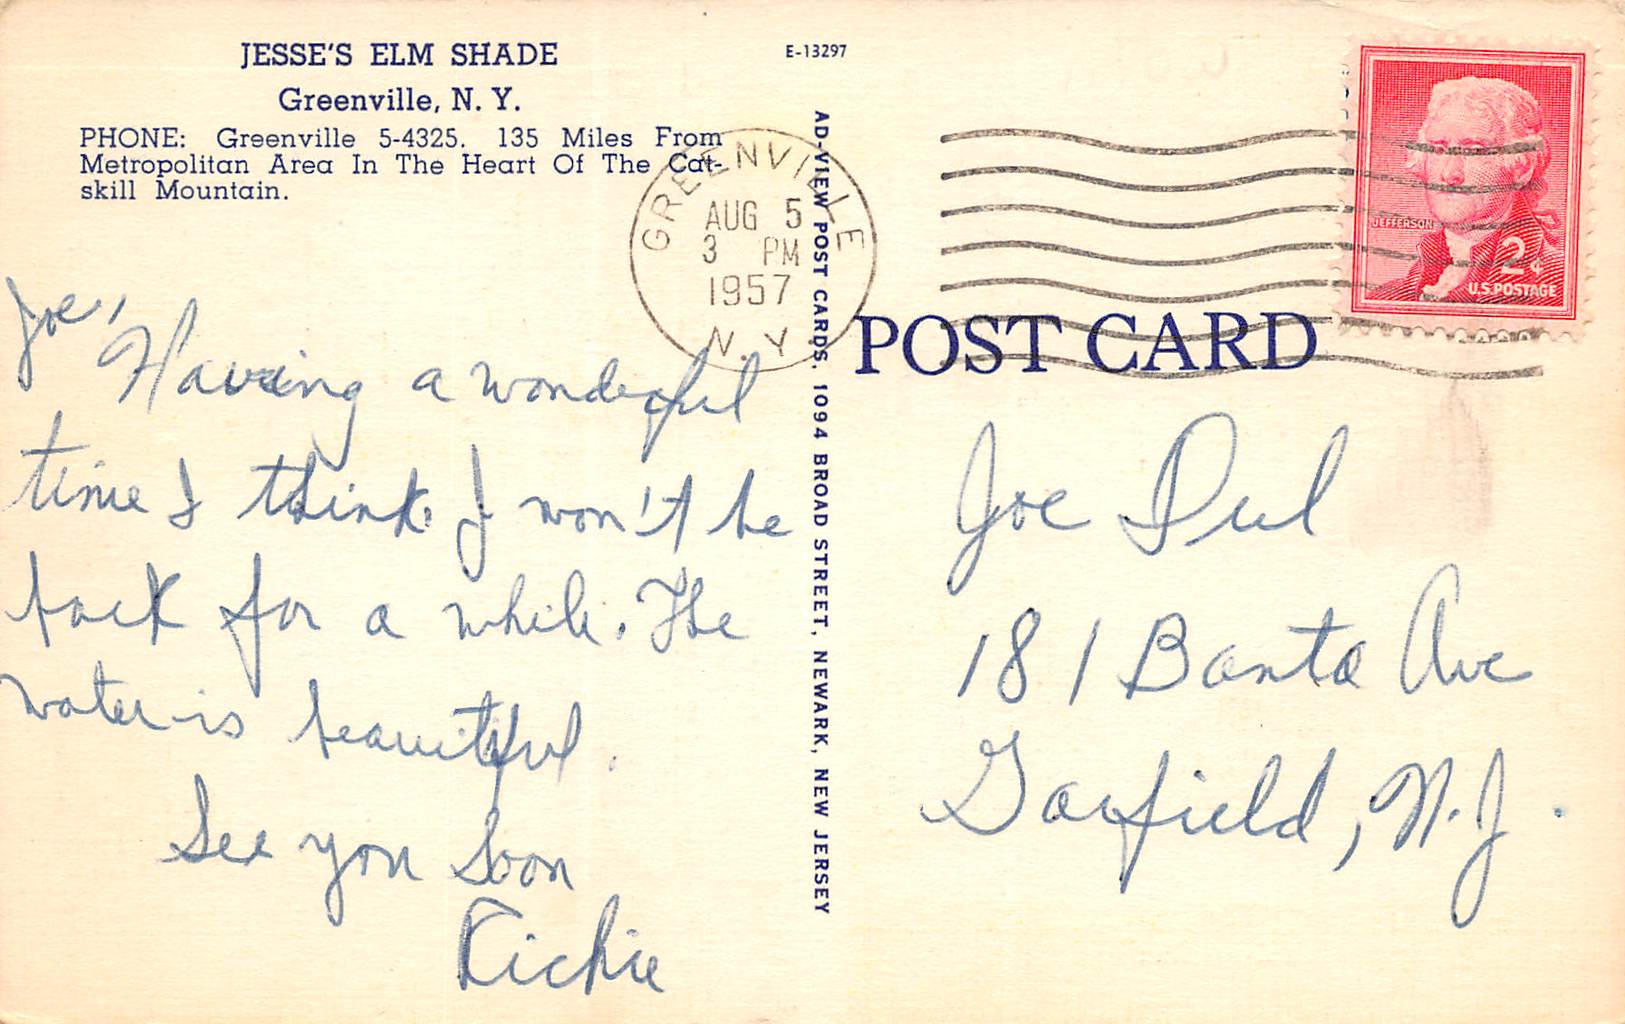 JESSE'S ELM SHADE
Greenville, N. Y.
PHONE: Greenville 5-4325. 135 Miles From
Metropolitan Area In The Heart Of The Cat-
skill Mountain.
E-13297
GREENVILLE
AUG 5
3 PM
1957
N. Y.
JEFFERSON
2¢
U.S. POSTAGE
POST CARD
AD-VIEW POST CARDS. 1094 BROAD STREET, NEWARK, NEW JERSEY
Joe,
Having a wonderful
time I think. I won't be
back for a while. The
water is beautiful.
See you Soon
Richie
Joe Dul
181 Banta Ave
Garfield, N.J.